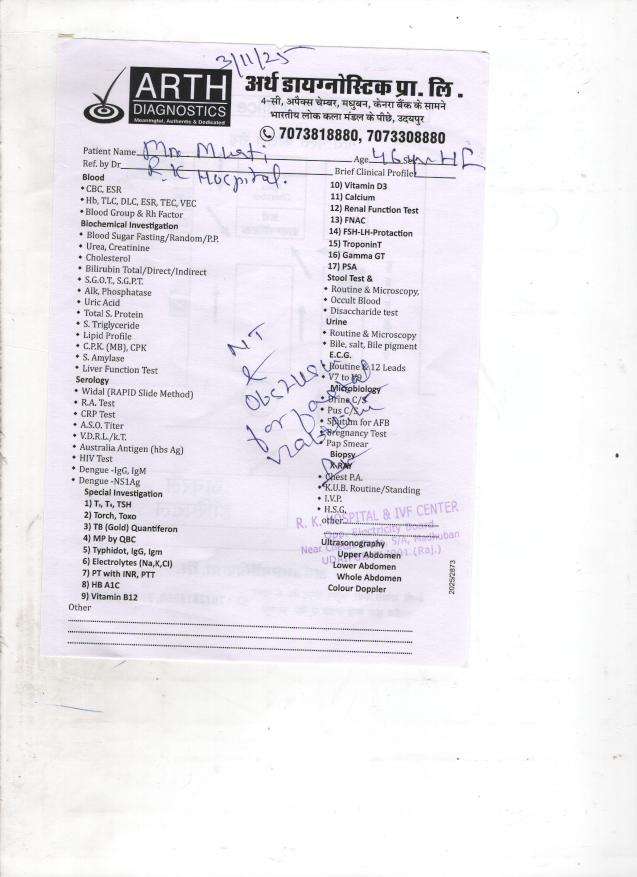 3/11/25
ARTH
DIAGNOSTICS
Meaningful, Authentic & Dedicated
अर्थ डायग्नोस्टिक प्रा. लि .
4-सी, अपैक्स चेम्बर, मधुबन, केनरा बैंक के सामने
भारतीय लोक कला मंडल के पीछे, उदयपुर
7073818880, 7073308880
Patient Name Age
Ref. by Dr R.K Hospital. Brief Clinical Profile
Blood
• CBC, ESR
• Hb, TLC, DLC, ESR, TEC, VEC
• Blood Group & Rh Factor
Biochemical Investigation
• Blood Sugar Fasting/Random/P.P.
• Urea, Creatinine
• Cholesterol
• Bilirubin Total/Direct/Indirect
• S.G.O.T., S.G.P.T.
• Alk, Phosphatase
• Uric Acid
• Total S. Protein
• S. Triglyceride
• Lipid Profile
• C.P.K. (MB), CPK
• S. Amylase
• Liver Function Test
Serology
• Widal (RAPID Slide Method)
• R.A. Test
• CRP Test
• A.S.O. Titer
• V.D.R.L./k.T.
• Australia Antigen (hbs Ag)
• HIV Test
• Dengue -IgG, IgM
• Dengue -NS1Ag
Special Investigation
1) T₃, T₄, TSH
2) Torch, Toxo
3) TB (Gold) Quantiferon
4) MP by QBC
5) Typhidot, IgG, Igm
6) Electrolytes (Na,K,Cl)
7) PT with INR, PTT
8) HB A1C
9) Vitamin B12
Other
10) Vitamin D3
11) Calcium
12) Renal Function Test
13) FNAC
14) FSH-LH-Protaction
15) TroponinT
16) Gamma GT
17) PSA
Stool Test &
• Routine & Microscopy,
• Occult Blood
• Disaccharide test
Urine
• Routine & Microscopy
• Bile, salt, Bile pigment
E.C.G.
• Routine & 12 Leads
• V7 to V9
Microbiology
• Urine C/S
• Pus C/S
• Sputum for AFB
• Pregnancy Test
• Pap Smear
Biopsy
X-RAY
• Chest P.A.
• K.U.B. Routine/Standing
• I.V.P.
• H.S.G.
other
Ultrasonography
Upper Abdomen
Lower Abdomen
Whole Abdomen
Colour Doppler
NT
&
for
R. K. HOSPITAL & IVF CENTER
Opp. Electricity Board
Near 5/A, Madhuban
(Raj.)
2025/2873